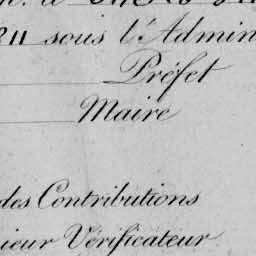 sous l'Admin
Préfet
Maire
des Contributions
ieur Vérificateur